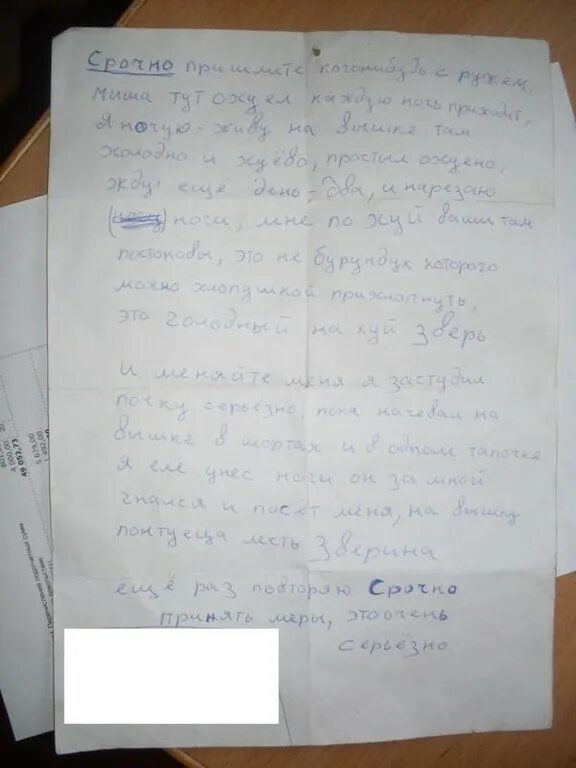 Срочно пришлите когонибудь с ружем.
Миша тут охуел каждую ночь приходит,
Я ночую - живу на вышке там
холодно и хуёво, простыл охуено,
жду ещё день - два, и нарезаю
ночи, мне по хуй ваши там
постоновы, это не бурундук которого
можно хлопушкой прихлопнуть,
это голодный на хуй зверь
И меняйте меня я застудил
почку серьёзно, пока начевал на
вышке в шортах и в одном тапочке
Я еле унес ноги он за мной
гнался и посёт меня, на вышку
понтуеца лесть Зверина
ещё раз повторяю Срочно
принять меры, это очень
серьёзно
49 052,73